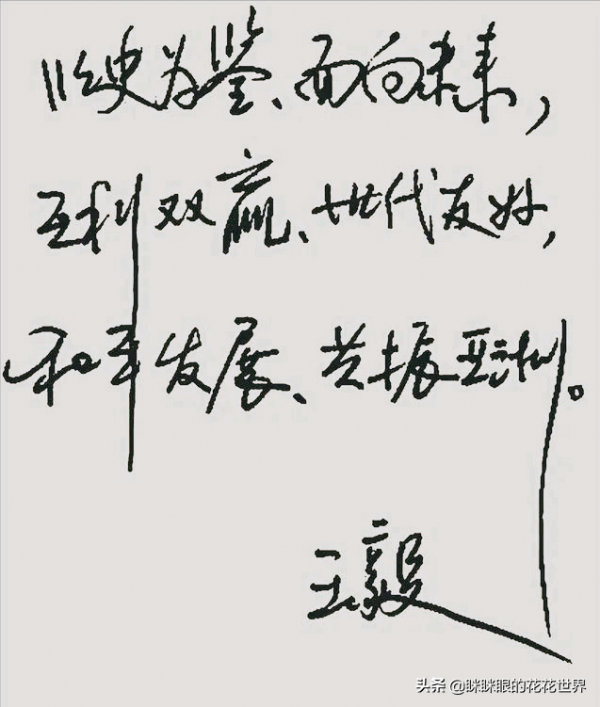 以史为鉴、面向未来，
互利双赢、世代友好，
和平发展、共振亚洲。
王毅
头条 @眯眯眼的花花世界